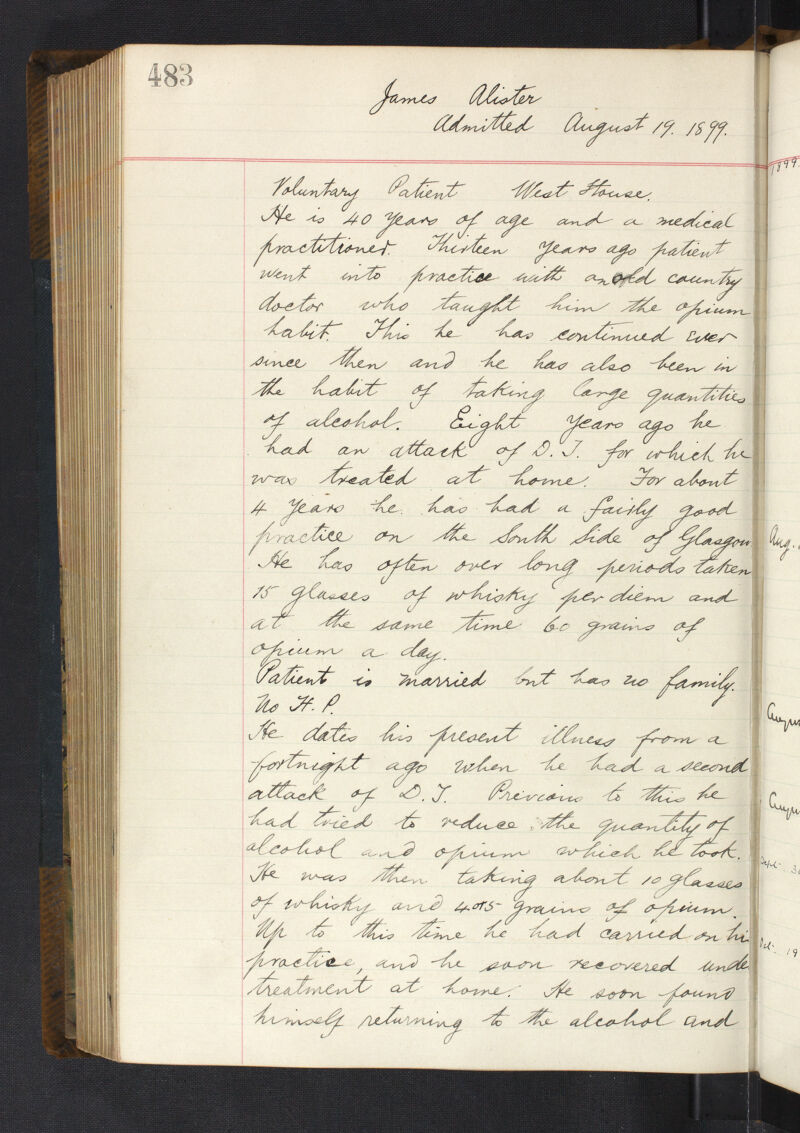 483
James Alister
Admitted August 19. 1899.
Voluntary Patient West House.
He is 40 years of age and a medical
practitioner. Thirteen years ago patient
went into practice with an old country
doctor who taught him the opium
habit. This he has continued ever
since then and he has also been in
the habit of taking large quantities
of alcohol. Eight years ago he
had an attack of D.T. for which he
was treated at home. For about
4 years he has had a fairly good
practice on the South Side of Glasgow.
He has often over long periods taken
15 glasses of whisky per diem and
at the same time 60 grains of
opium a day.
Patient is married but has no family.
No H.P.
He dates his present illness from a
fortnight ago when he had a second
attack of D.T. Previous to this he
had tried to reduce the quantity of
alcohol and opium which he took.
He was then taking about 10 glasses
of whisky and 4 or 5 grains of opium.
Up to this time he had carried on his
practice, and he soon recovered unde
treatment at home. He soon found
himself returning to the alcohol and
1899.
Aug.
Augus
Augus
Sept. 30
Oct. 19